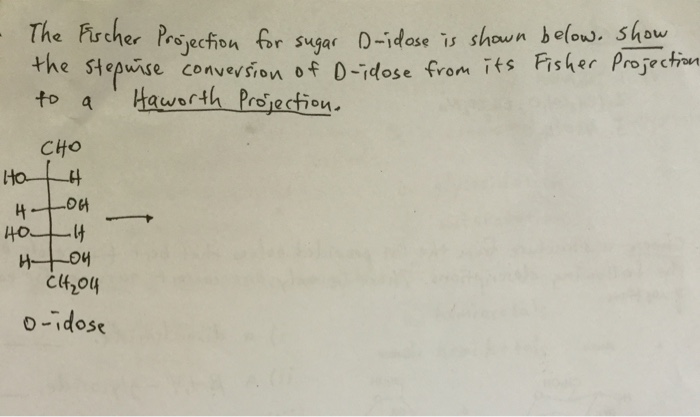 The Fischer Projection for sugar D-idose is shown below. Show
the stepwise conversion of D-idose from its Fisher Projection
to a Haworth Projection.
CHO
HO H
H OH
HO H
H OH
CH2OH
D-idose